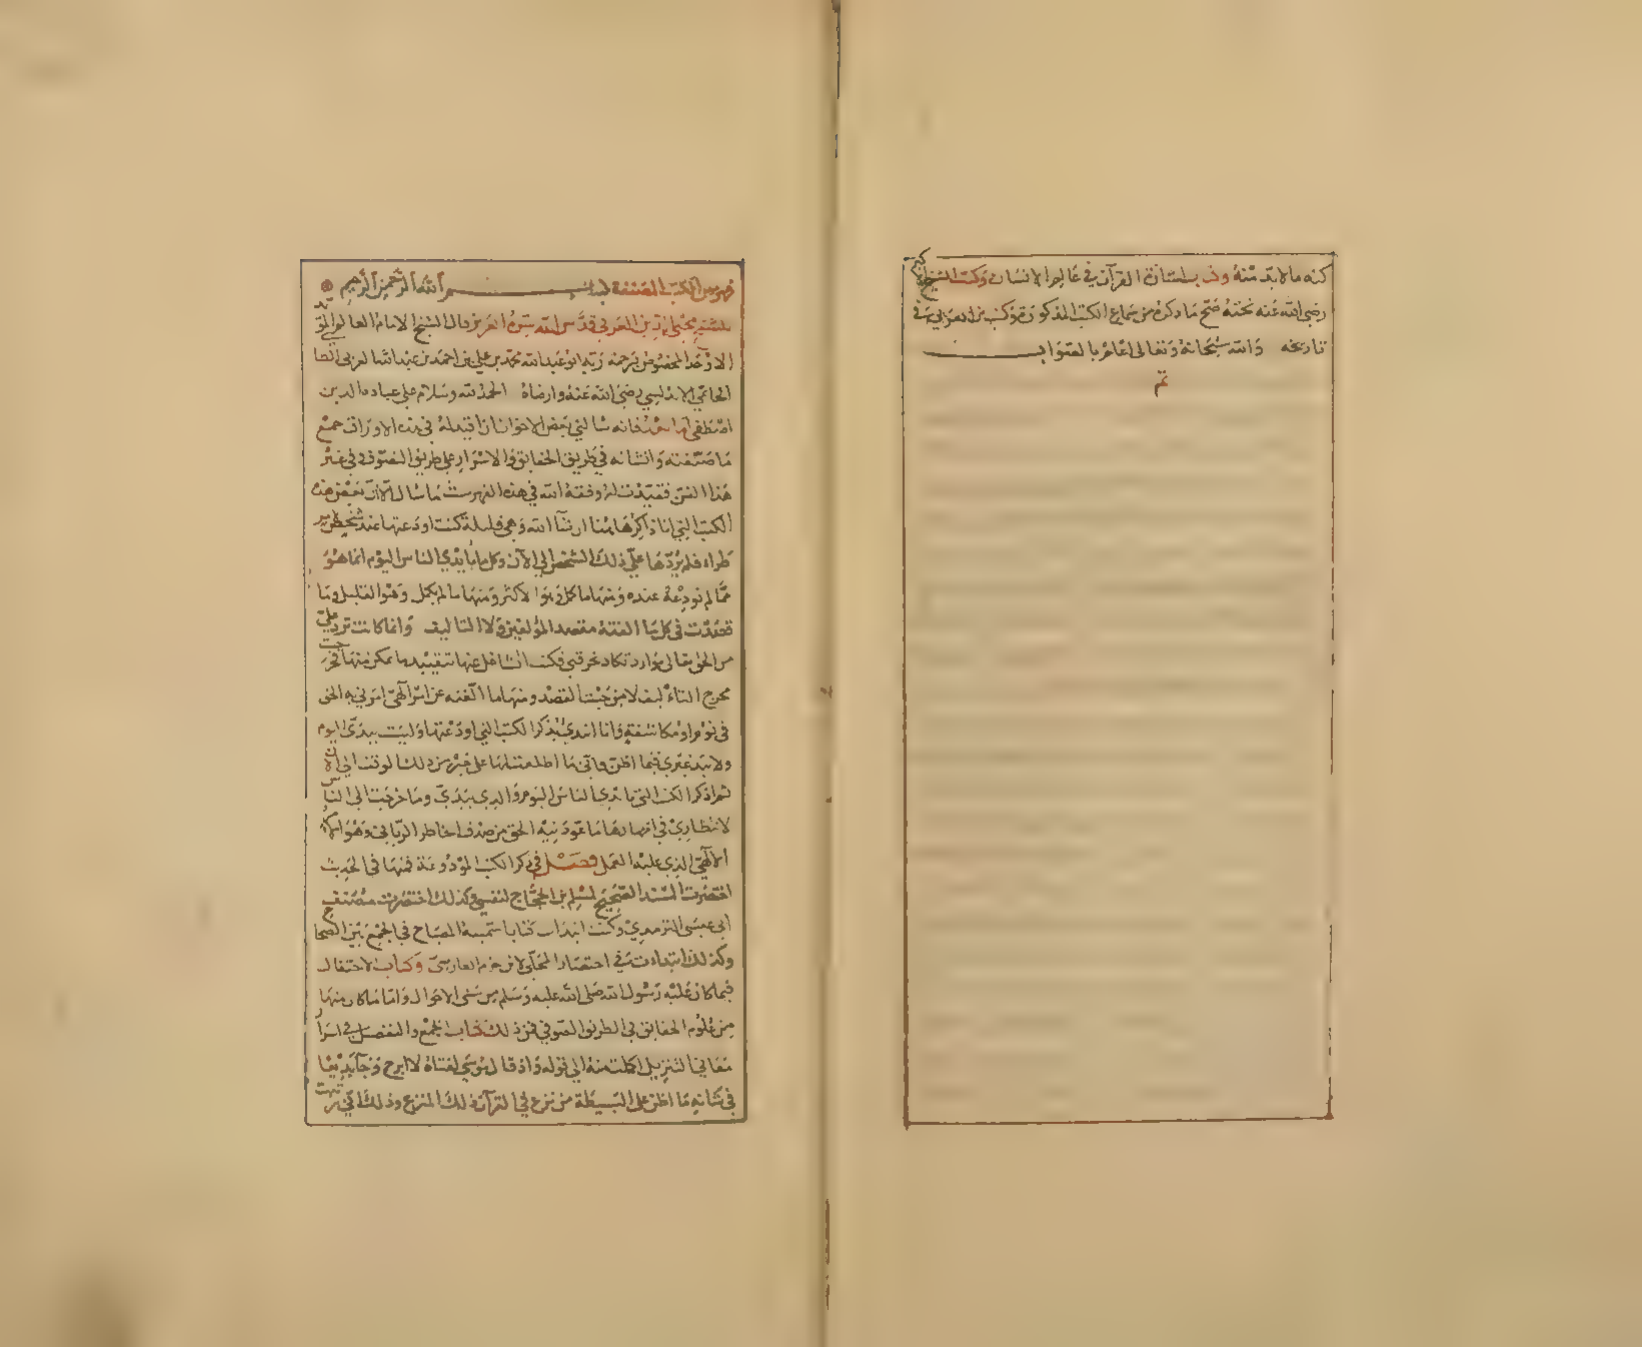 كنه ما لا بد منه وفي بلسان القرآن في عالم الانسان وكتب الشيخ
رضي الله عنه تحته صح ما ذكره من سماع الكتب المذكورة وكتب بن العربي في
تاريخه والله سبحانه وتعالى اعلم بالصواب
تم
فهرس الكتب المصنفة بسم الله الرحمن الرحيم
محيي الدين بن العربي قدس الله سره العزيز قال الشيخ الامام العالم
الاوحد المخصوص برحمة ربه ابو عبد الله محمد بن علي بن احمد بن عبد الله العربي الطا
الحاتمي الاندلسي رضي الله عنه وارضاه الحمد لله وسلام على عباده الذين
اصطفى اما بعد فانه سألني بعض الاخوان ان اقيد له في هذه الاوراق جميع
ما صنفته وانشأته في طريق الحقائق والاسرار على طريق التصوف وفي غير
هذا الفن فقيدت له وفقه الله في هذا الفهرست ما سأل الا ان بعض هذه
الكتب التي انا ذاكرها هنا ان شا الله وهي قليلة كنت اودعتها عند شخص لامر
طراء فلم يردها علي ذلك الشخص الى الآن وكل ما بايدي الناس اليوم انما هو
مما لم نودعه عنده ومنها ما كمل وهو الاكثر ومنها ما لم يكمل وهو القليل وما
قصدت في كل ما الفته مقصد المؤلفين ولا التاليف وانما كانت ترد علي
من الحق تعالى موارد تكاد تحرقني فكنت اتشاغل عنها بتقييد ما يمكن منها فخرجت
مخرج التاءليف لا من حيث القصد ومنها ما الفته عن امر الهي امرني به الحق
في نوم او مكاشفة وانا ابتدئ بذكر الكتب التي اودعتها وليست بيدي اليوم
ولا بيد غيري فيما اظن فاني ما اطلعت لها على خبر من ذلك الوقت الى الان
ثم اذكر الكتب التي بايدي الناس اليوم والذي بيدي وما خرجت الى الناس
لانتظاري في اظهارها ما عودنيه الحق من صدق الخاطر الرباني وهو الامر
الالهي الذي عليه العمل فصل في ذكر الكتب المودوعة فمنها في الحديث
اختصرت المسند الصحيح لمسلم بن الحجاج لنفسي وكذلك اختصرت مصنف
ابي عيسى الترمذي وكنت ابتدات كتابا سميته المصباح في الجمع بين الصحا
وكذلك ابتداءت في اختصار المحلى لابن حزم الفارسي وكتاب الاحتفال
فيما كان عليه رسول الله صلى الله عليه وسلم من سني الاحوال واما ما كان منها
من علوم الحقائق في الطريق الصوفي فمن ذلك كتاب الجمع والتفصيل في اسرار
معاني التنزيل اكملت منه الى قوله واذ قال موسى لفتاه لا ابرح وجآء بديعا
في شانه ما اظن على البسيطة من نزع في القرآن ذلك المنزع وذلك اني رتبت